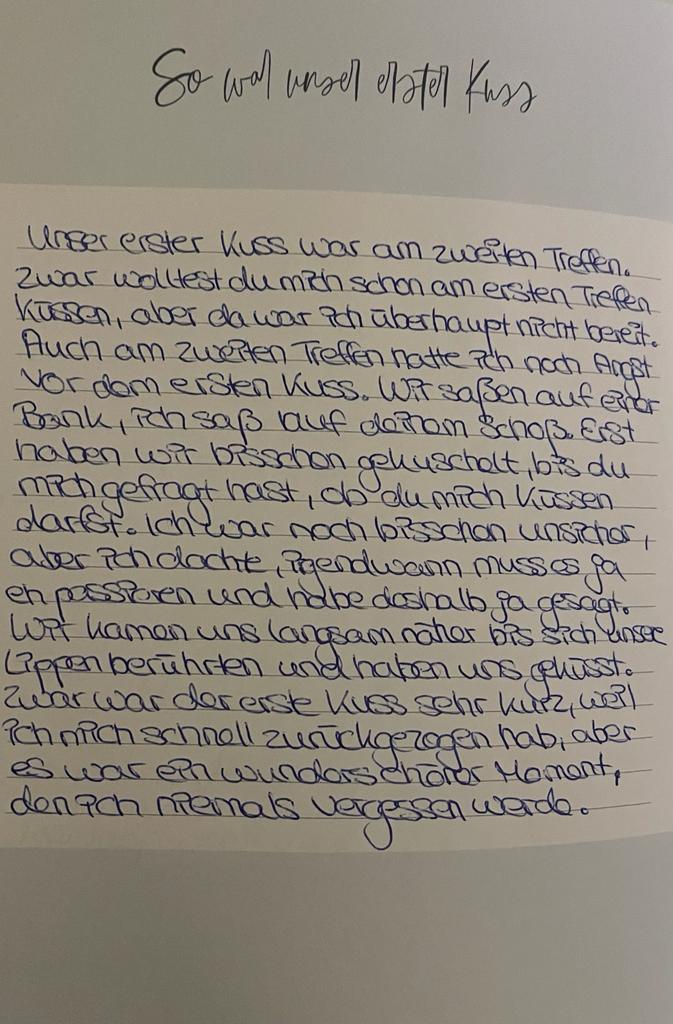 So war unser erster Kuss
Unser erster Kuss war am zweiten Treffen.
Zwar wolltest du mich schon am ersten Treffen
Küssen, aber da war ich überhaupt nicht bereit.
Auch am zweiten Treffen hatte ich noch Angst
vor dem ersten Kuss. Wir saßen auf einer
Bank, ich saß auf deinem Schoß. Erst
haben wir bisschen gekuschelt, bis du
mich gefragt hast, ob du mich Küssen
darfst. Ich war noch bisschen unsicher,
aber ich dachte, irgendwann muss es ja
eh passieren und habe deshalb ja gesagt.
Wir kamen uns langsam näher bis sich unsere
Lippen berührten und haben uns geküsst.
Zwar war der erste Kuss sehr kurz, weil
ich mich schnell zurückgezogen hab, aber
es war ein wunderschöner Moment,
den ich niemals vergessen werde.